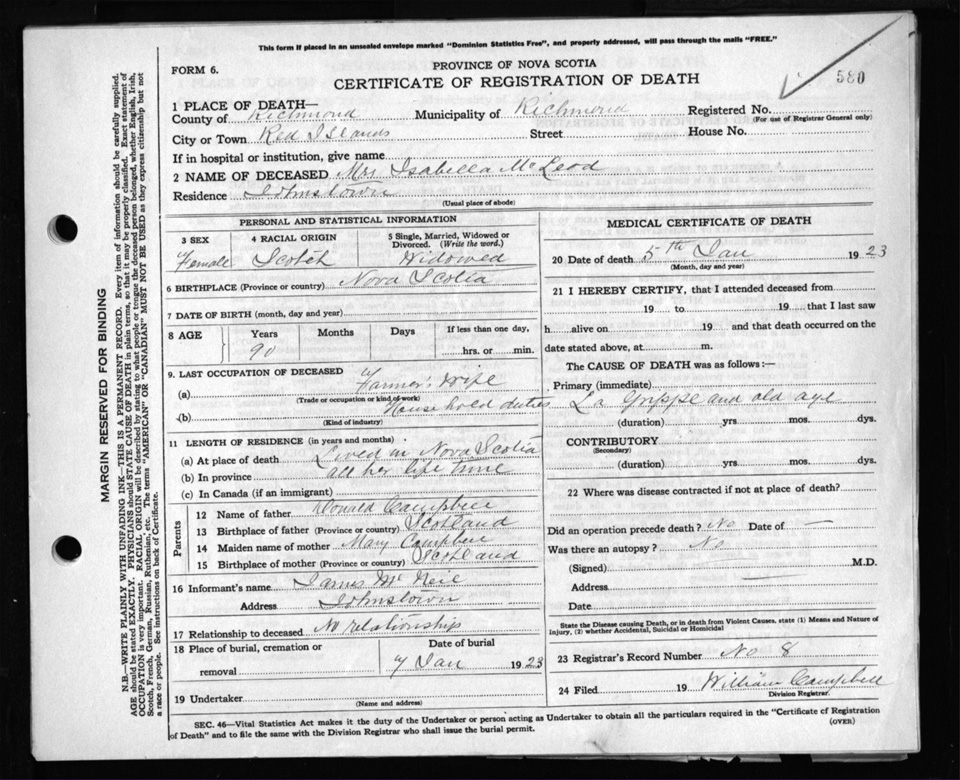 This form if placed in an unsealed envelope marked "Dominion Statistics Free", and properly addressed, will pass through the mails "FREE."
FORM 6.
PROVINCE OF NOVA SCOTIA
CERTIFICATE OF REGISTRATION OF DEATH
580
1 PLACE OF DEATH—
County of Richmond Municipality of Richmond Registered No.
(For use of Registrar General only)
City or Town Red Islands Street House No.
If in hospital or institution, give name
2 NAME OF DECEASED Mrs Isabella McLeod
Residence Johnstown
(Usual place of abode)
PERSONAL AND STATISTICAL INFORMATION
3 SEX 4 RACIAL ORIGIN 5 Single, Married, Widowed or Divorced. (Write the word.)
Female Scotch Widowed
6 BIRTHPLACE (Province or country) Nova Scotia
7 DATE OF BIRTH (month, day and year)
8 AGE Years Months Days If less than one day,
90 hrs. or min.
9. LAST OCCUPATION OF DECEASED
(a) Farmer's Wife
(Trade or occupation or kind of work)
(b) Household duties
(Kind of industry)
11 LENGTH OF RESIDENCE (in years and months)
(a) At place of death Lived in Nova Scotia
(b) In province all her life time
(c) In Canada (if an immigrant)
Parents
12 Name of father Donald Campbell
13 Birthplace of father (Province or country) Scotland
14 Maiden name of mother Mary Campbell
15 Birthplace of mother (Province or country) Scotland
16 Informant's name James McNeil
Address Johnstown
17 Relationship to deceased No relationship
18 Place of burial, cremation or removal Date of burial
7 Jan 1923
19 Undertaker
(Name and address)
MEDICAL CERTIFICATE OF DEATH
20 Date of death 5th Jan 1923
(Month, day and year)
21 I HEREBY CERTIFY, that I attended deceased from
19 to 19 that I last saw
h alive on 19 and that death occurred on the
date stated above, at m.
The CAUSE OF DEATH was as follows:—
Primary (immediate)
La Grippe and old age
(duration) yrs. mos. dys.
CONTRIBUTORY
(Secondary)
(duration) yrs. mos. dys.
22 Where was disease contracted if not at place of death?
Did an operation precede death? No Date of —
Was there an autopsy? No
(Signed) M.D.
Address
Date
State the Disease causing Death, or in death from Violent Causes, state (1) Means and Nature of Injury, (2) whether Accidental, Suicidal or Homicidal
23 Registrar's Record Number No 8
24 Filed 19 William Campbell
Division Registrar
SEC. 46—Vital Statistics Act makes it the duty of the Undertaker or person acting as Undertaker to obtain all the particulars required in the "Certificate of Registration
of Death" and to file the same with the Division Registrar who shall issue the burial permit. (OVER)
MARGIN RESERVED FOR BINDING
N.B.—WRITE PLAINLY WITH UNFADING INK—THIS IS A PERMANENT RECORD. Every item of information should be carefully supplied.
AGE should be stated EXACTLY. PHYSICIANS should STATE CAUSE OF DEATH in plain terms, so that it may be properly classified. Exact statement of
OCCUPATION is very important. RACIAL ORIGIN will be described by stating to what people or tongue the deceased person belonged, whether English, Irish,
Scotch, French, German, Russian, Ruthenian, etc. The terms "AMERICAN" OR "CANADIAN" MUST NOT BE USED as they express citizenship but not
a race or people. See instructions on back of Certificate.